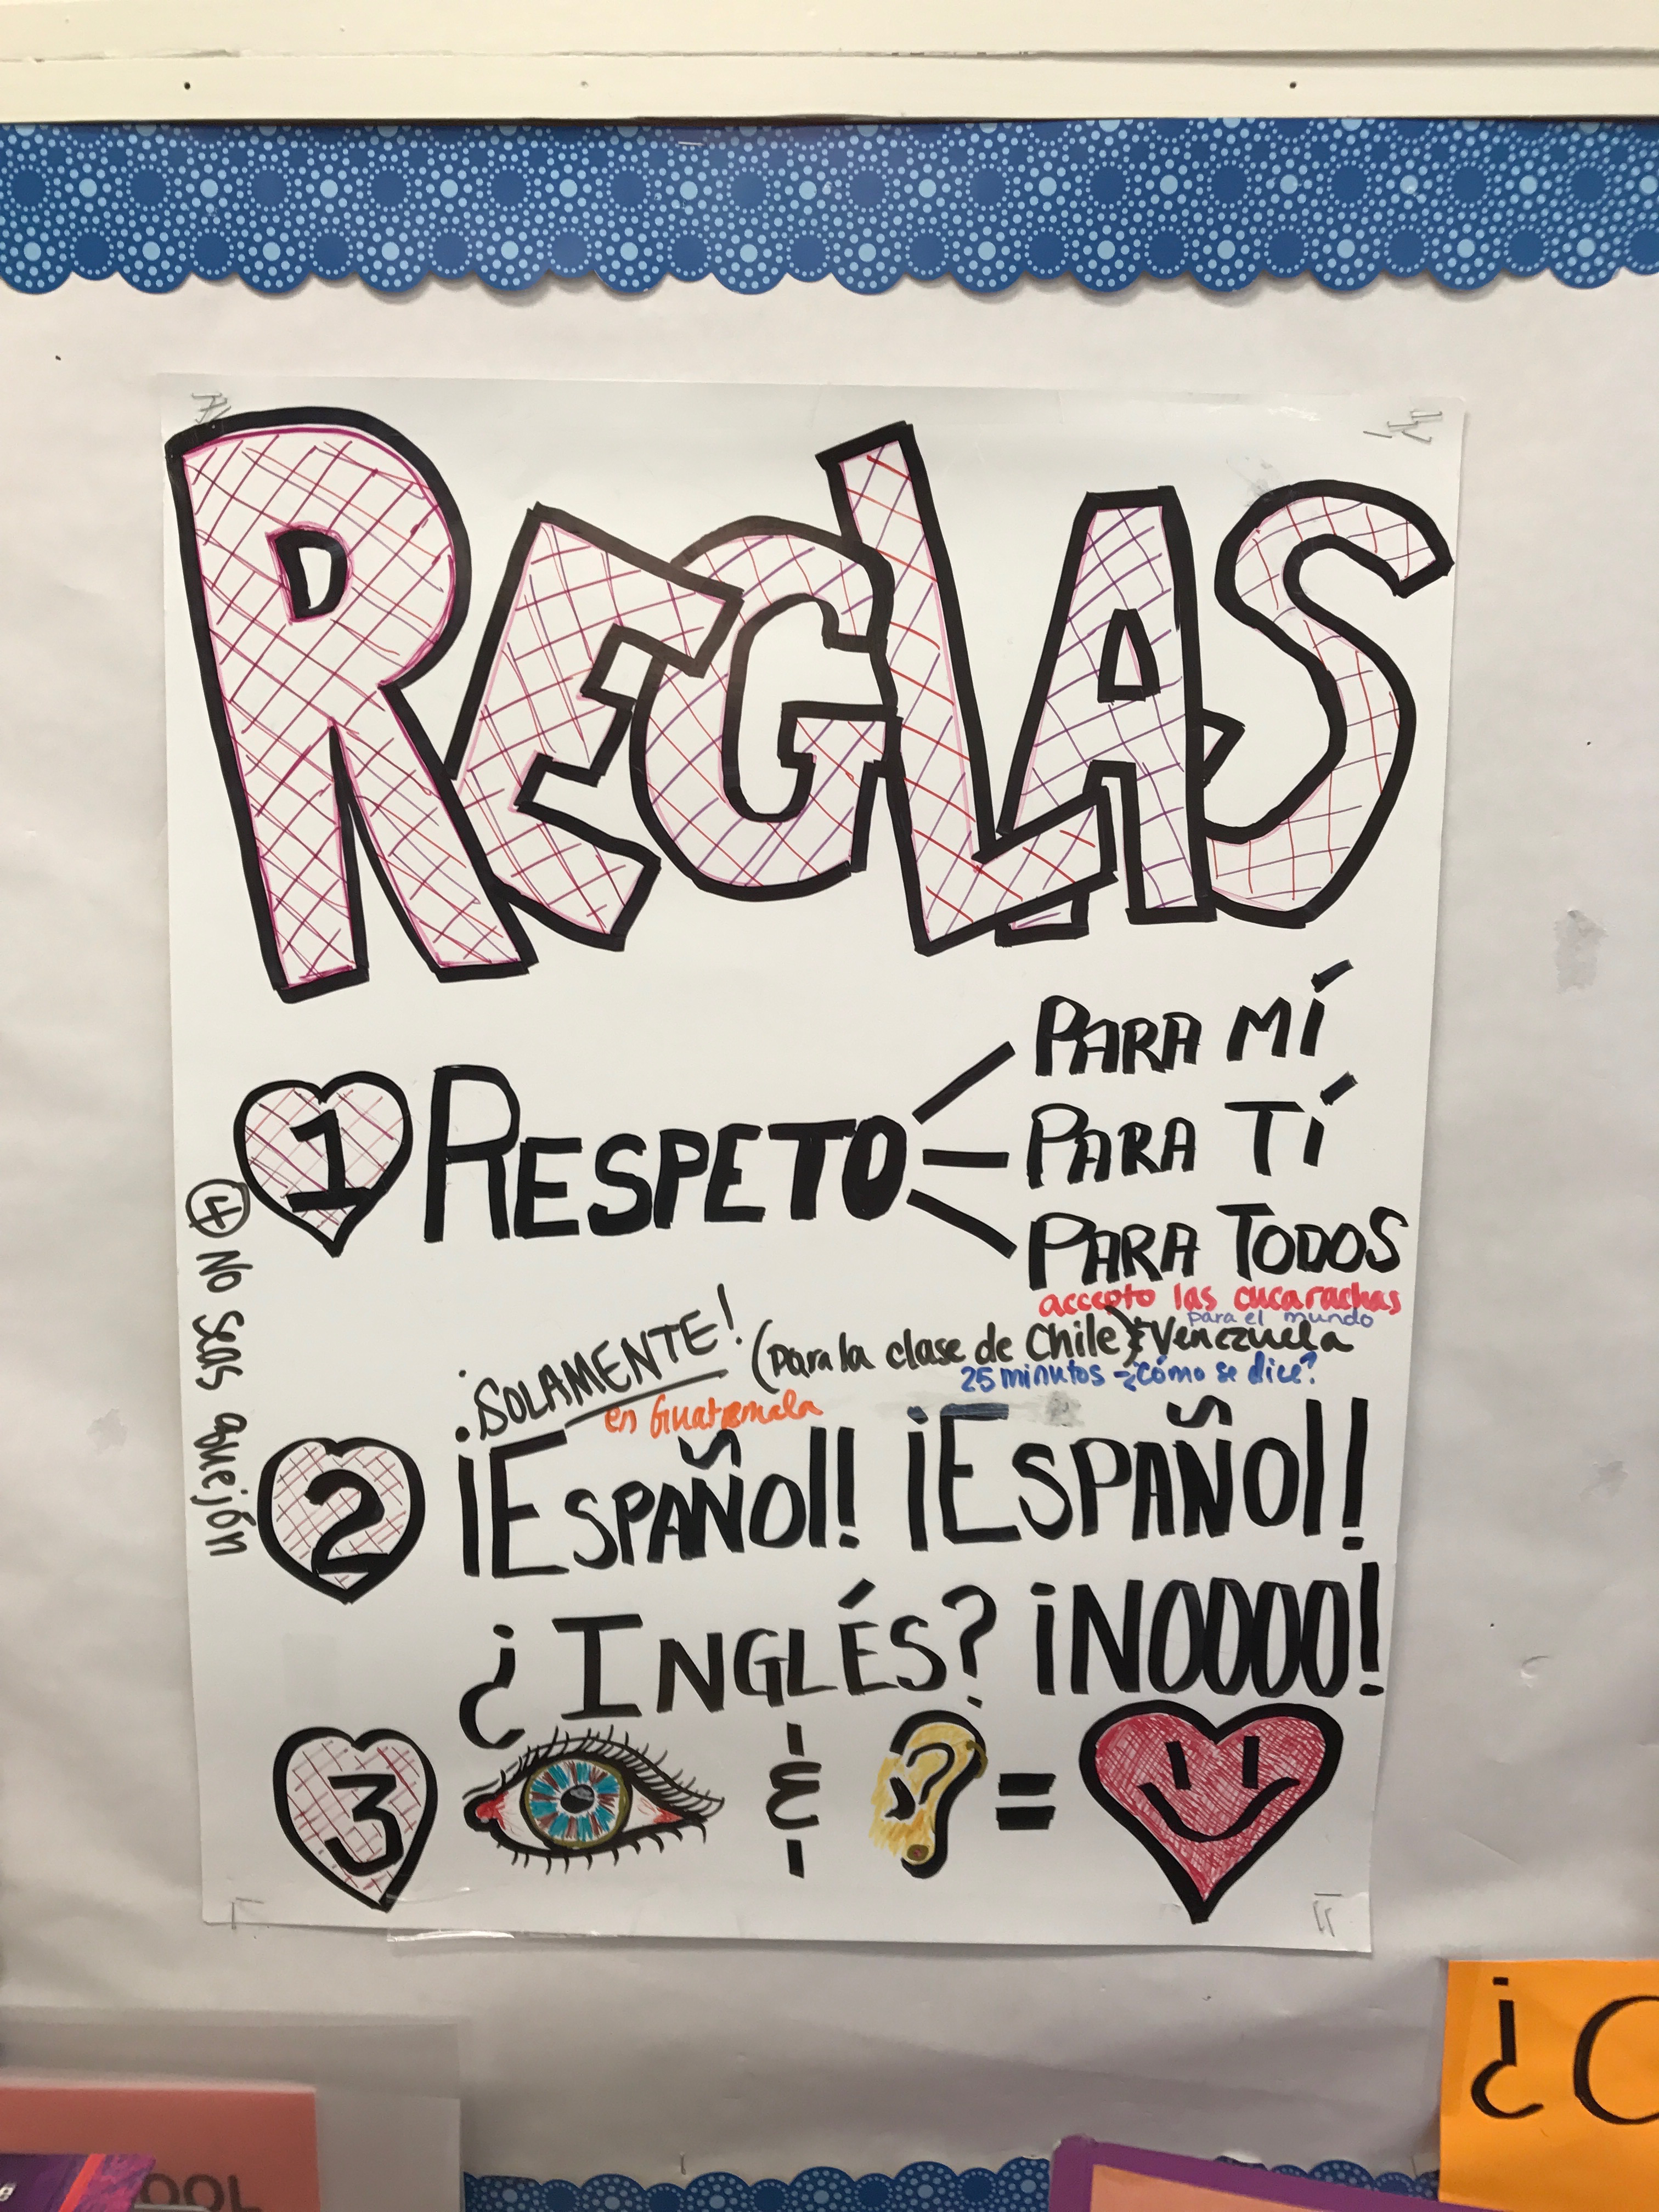 REGLAS
1 RESPETO
PARA MÍ
PARA TÍ
PARA TODOS
accepto las cucarachas
para el mundo
¡SOLAMENTE! (para la clase de Chile) & Venezuela
25 minutos - ¿cómo se dice?
en Guatemala
2 ¡ESPAÑOl! ¡ESPAÑOl!
¿INGLÉS? ¡NOOOO!
3 & =
4 No seas quejón
¿C
OOL